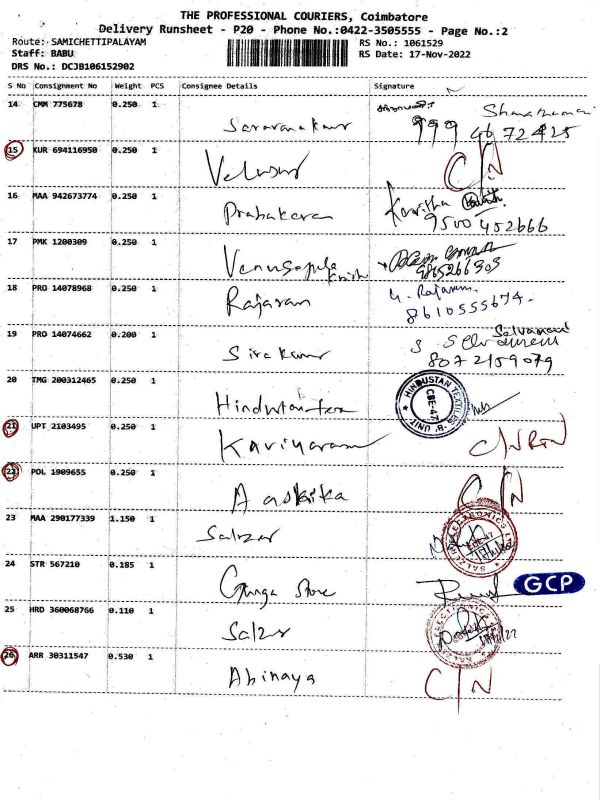 THE PROFESSIONAL COURIERS, Coimbatore
Delivery Runsheet - P20 - Phone No.:0422-3505555 - Page No.:2
Route: SAMICHETTIPALAYAM
Staff: BABU
DRS No.: DCJB106152902
RS No.: 1061529
RS Date: 17-Nov-2022
S No Consignment No Weight PCS Consignee Details Signature
14 CMM 775678 0.250 1 Saravanakumar 999 4672425
15 KUR 694116950 0.250 1 Velusur C/N
16 MAA 942673774 0.250 1 Prabakaran Kavitha
9500452666
17 PMK 1200309 0.250 1 Venugopala Krish
9865266303
18 PRO 14078968 0.250 1 Rajaram G. Rajaram
8610555674.
19 PRO 14074662 0.200 1 Sivakumar Selvamani
8072159079
20 TMG 200312465 0.250 1 Hindustan tex HINDUSTAN TEXTILES 'B' UNIT CBE-47
21 UPT 2103495 0.250 1 Kaviyaram C/N RTN
22 POL 1909655 0.250 1 Aashika C/N
23 MAA 290177339 1.150 1 Salzer
24 STR 567210 0.185 1 Ganga Store GCP
25 HRD 360068766 0.110 1 Salzer
26 ARR 30311547 0.530 1 Abinaya C/N